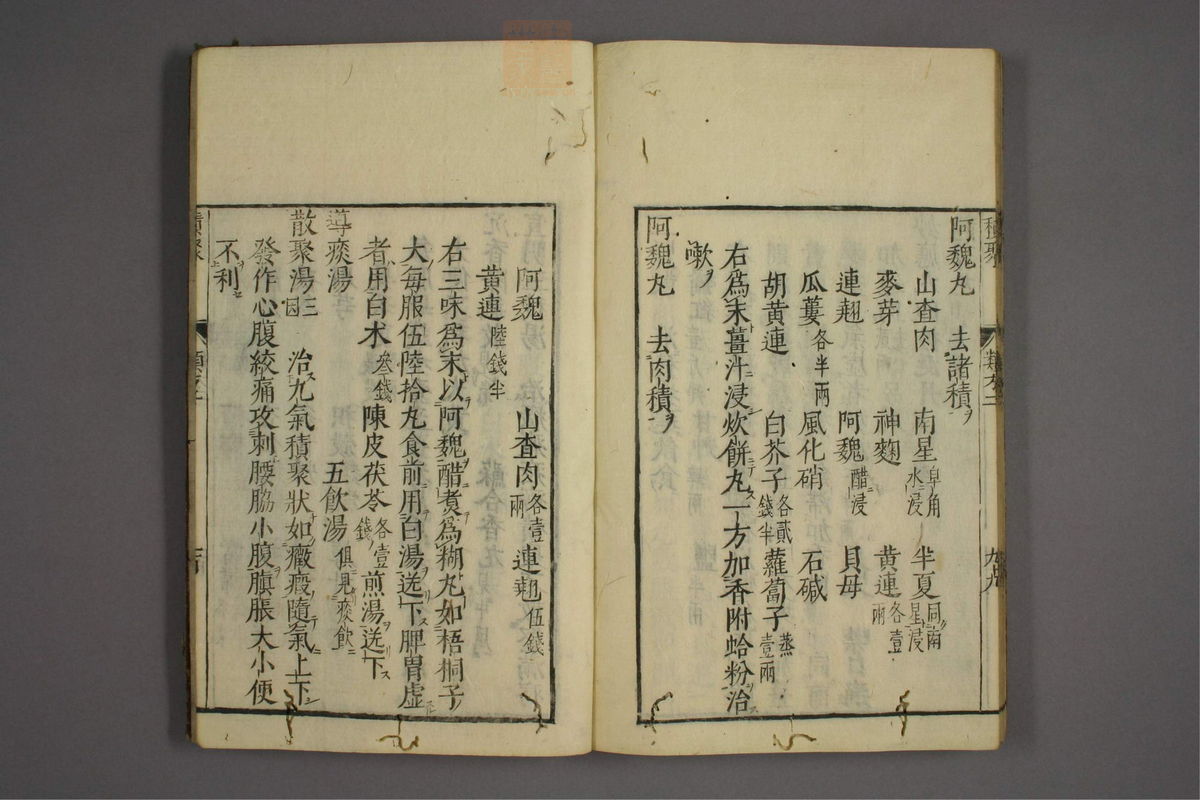 阿魏丸 去諸積ヲ
山査肉 南星皁角水浸 半夏同南星浸
麥芽 神麴 黃連各壹兩
連翹 阿魏醋浸 貝母
瓜蔞各半兩 風化硝 石鹹
胡黃連 白芥子各貳錢半 蘿蔔子蒸壹兩
右爲末薑汁浸炊餅丸一方加香附蛤粉治
嗽ヲ
阿魏丸 去肉積ヲ
阿魏 山査肉各壹兩 連翹伍錢
黃連陸錢半
右三味爲末以阿魏醋煮爲糊丸如梧桐子
大每服伍陸拾丸食前用白湯送下脾胃虛
者用白朮叄錢陳皮茯苓各壹錢煎湯送下
導痰湯 五飮湯俱見痰飮
散聚湯三因 治九氣積聚狀如癥瘕隨氣上下
發作心腹絞痛攻刺腰脇小腹䐜脹大小便
不利
積聚